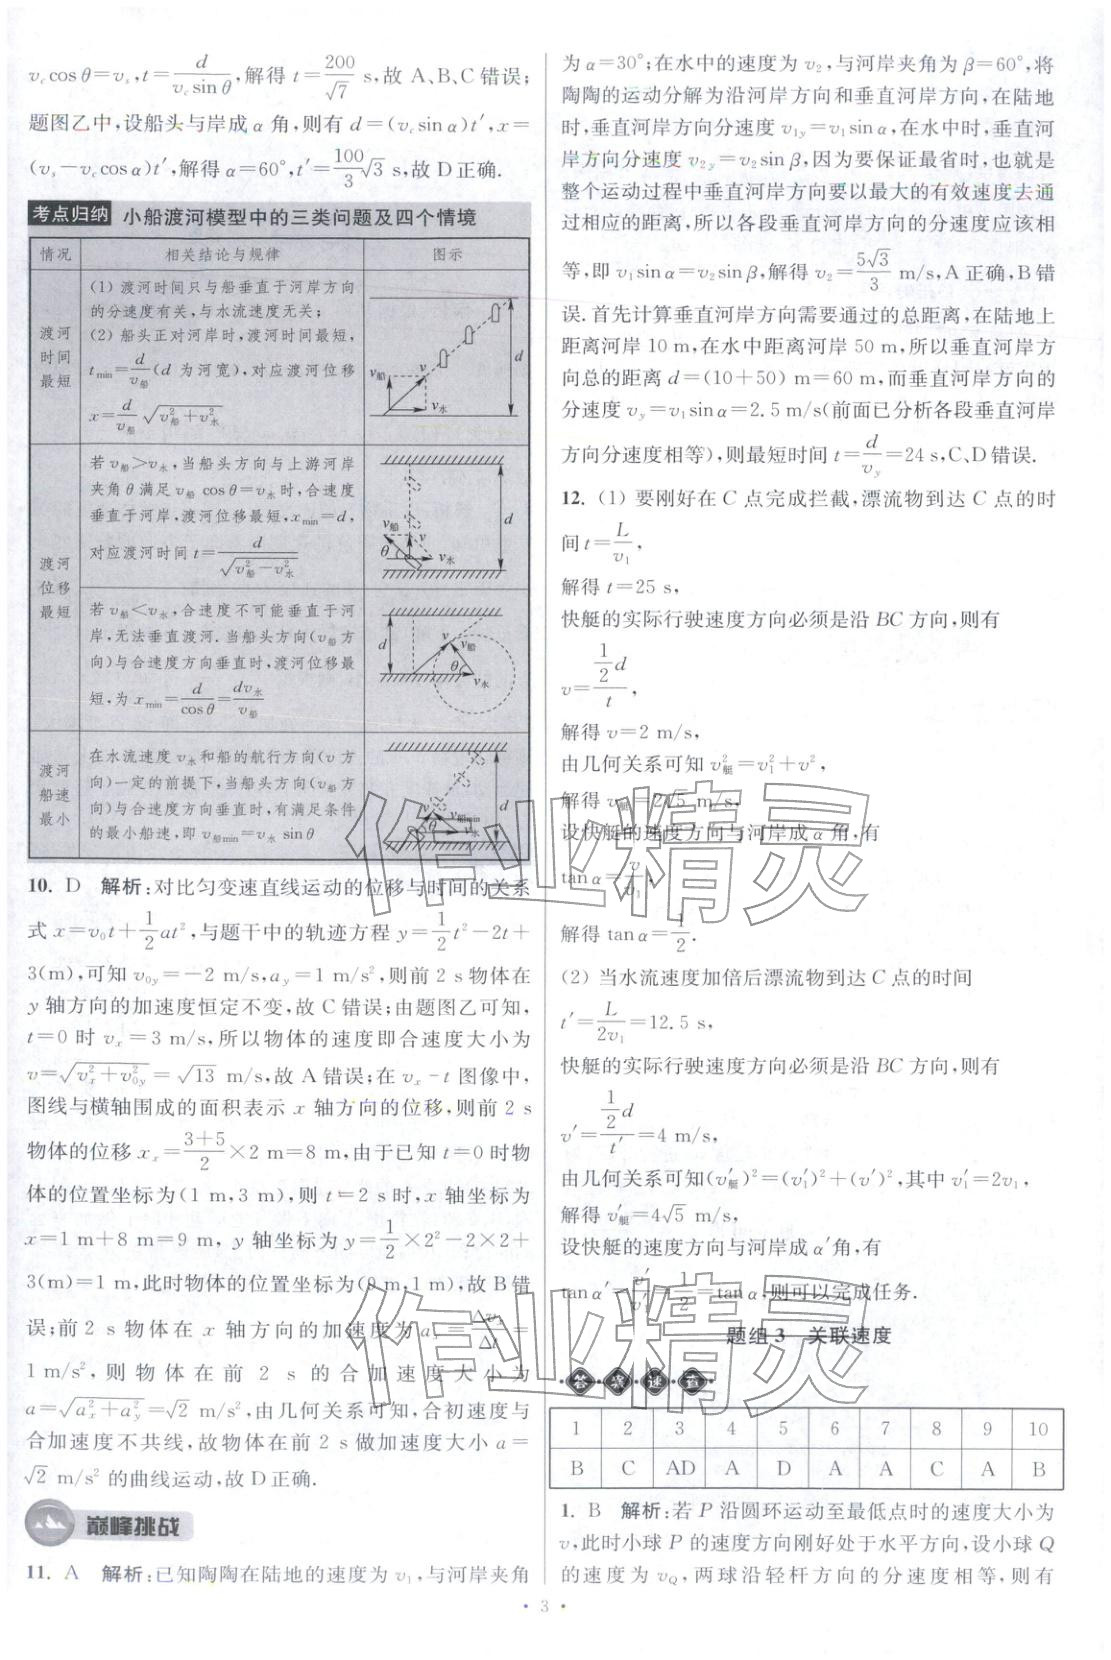 v_c cosθ=v_s,t=d/(v_c sinθ),解得 t=200/√7 s,故 A、B、C 错误;
题图乙中,设船头与岸成 α 角,则有 d=(v_c sinα)t′,x=
(v_s−v_c cosα)t′,解得 α=60°,t′=100/3 √3 s,故 D 正确.
考点归纳 小船渡河模型中的三类问题及四个情境
情况 相关结论与规律 图示
渡河时间最短
(1) 渡河时间只与船垂直于河岸方向
的分速度有关,与水流速度无关;
(2) 船头正对河岸时,渡河时间最短,
t_min=d/v_船(d 为河宽),对应渡河位移
x=d/v_船 √(v_船²+v_水²)
v_船 v v_水 d
渡河位移最短
若 v_船>v_水,当船头方向与上游河岸
夹角 θ 满足 v_船 cosθ=v_水 时,合速度
垂直于河岸,渡河位移最短,x_min=d,
对应渡河时间 t=d/√(v_船²−v_水²)
v_船 v θ v_水 d
若 v_船<v_水,合速度不可能垂直于河
岸,无法垂直渡河.当船头方向(v_船 方
向)与合速度方向垂直时,渡河位移最
短,为 x_min=d/cosθ=dv_水/v_船
d v v_船 θ v_水
渡河船速最小
在水流速度 v_水 和船的航行方向(v 方
向)一定的前提下,当船头方向(v_船 方
向)与合速度方向垂直时,有满足条件
的最小船速,即 v_船min=v_水 sinθ
v v_船min θ v_水 d
10. D 解析:对比匀变速直线运动的位移与时间的关系
式 x=v₀t+1/2 at²,与题干中的轨迹方程 y=1/2 t²−2t+
3(m),可知 v_0y=−2 m/s,a_y=1 m/s²,则前 2 s 物体在
y 轴方向的加速度恒定不变,故 C 错误;由题图乙可知,
t=0 时 v_x=3 m/s,所以物体的速度即合速度大小为
v=√(v_x²+v_0y²)=√13 m/s,故 A 错误;在 v_x-t 图像中,
图线与横轴围成的面积表示 x 轴方向的位移,则前 2 s
物体的位移 x_x=(3+5)/2×2 m=8 m,由于已知 t=0 时物
体的位置坐标为(1 m,3 m),则 t=2 s 时,x 轴坐标为
x=1 m+8 m=9 m, y 轴坐标为 y=1/2×2²−2×2+
3(m)=1 m,此时物体的位置坐标为(9 m,1 m),故 B 错
误;前 2 s 物体在 x 轴方向的加速度为 a_x=Δv_x/Δt=
1 m/s²,则物体在前 2 s 的合加速度大小为
a=√(a_x²+a_y²)=√2 m/s²,由几何关系可知,合初速度与
合加速度不共线,故物体在前 2 s 做加速度大小 a=
√2 m/s² 的曲线运动,故 D 正确.
巅峰挑战
11. A 解析:已知陶陶在陆地的速度为 v₁,与河岸夹角
为 α=30°;在水中的速度为 v₂,与河岸夹角为 β=60°,将
陶陶的运动分解为沿河岸方向和垂直河岸方向,在陆地
时,垂直河岸方向分速度 v_1y=v₁sinα,在水中时,垂直河
岸方向分速度 v_2y=v₂sinβ,因为要保证最省时,也就是
整个运动过程中垂直河岸方向要以最大的有效速度去通
过相应的距离,所以各段垂直河岸方向的分速度应该相
等,即 v₁sinα=v₂sinβ,解得 v₂=5√3/3 m/s,A 正确,B 错
误.首先计算垂直河岸方向需要通过的总距离,在陆地上
距离河岸 10 m,在水中距离河岸 50 m,所以垂直河岸方
向总的距离 d=(10+50) m=60 m,而垂直河岸方向的
分速度 v_y=v₁sinα=2.5 m/s(前面已分析各段垂直河岸
方向分速度相等),则最短时间 t=d/v_y=24 s,C、D 错误.
12. (1) 要刚好在 C 点完成拦截,漂流物到达 C 点的时
间 t=L/v₁,
解得 t=25 s,
快艇的实际行驶速度方向必须是沿 BC 方向,则有
v=(1/2 d)/t,
解得 v=2 m/s,
由几何关系可知 v_艇²=v₁²+v²,
解得 v_艇=2√5 m/s,
设快艇的速度方向与河岸成 α 角,有
tanα=v/v₁,
解得 tanα=1/2.
(2) 当水流速度加倍后漂流物到达 C 点的时间
t′=L/2v₁=12.5 s,
快艇的实际行驶速度方向必须是沿 BC 方向,则有
v′=(1/2 d)/t′=4 m/s,
由几何关系可知(v′_艇)²=(v₁′)²+(v′)²,其中 v₁′=2v₁,
解得 v′_艇=4√5 m/s,
设快艇的速度方向与河岸成 α′角,有
tanα′=v′/v₁′=1/2=tanα,则可以完成任务.
题组 3 关联速度
答案速查
1 2 3 4 5 6 7 8 9 10
B C AD A D A A C A B
1. B 解析:若 P 沿圆环运动至最低点时的速度大小为
v,此时小球 P 的速度方向刚好处于水平方向,设小球 Q
的速度为 v_Q,两球沿轻杆方向的分速度相等,则有
· 3 ·
作业精灵
作业精灵